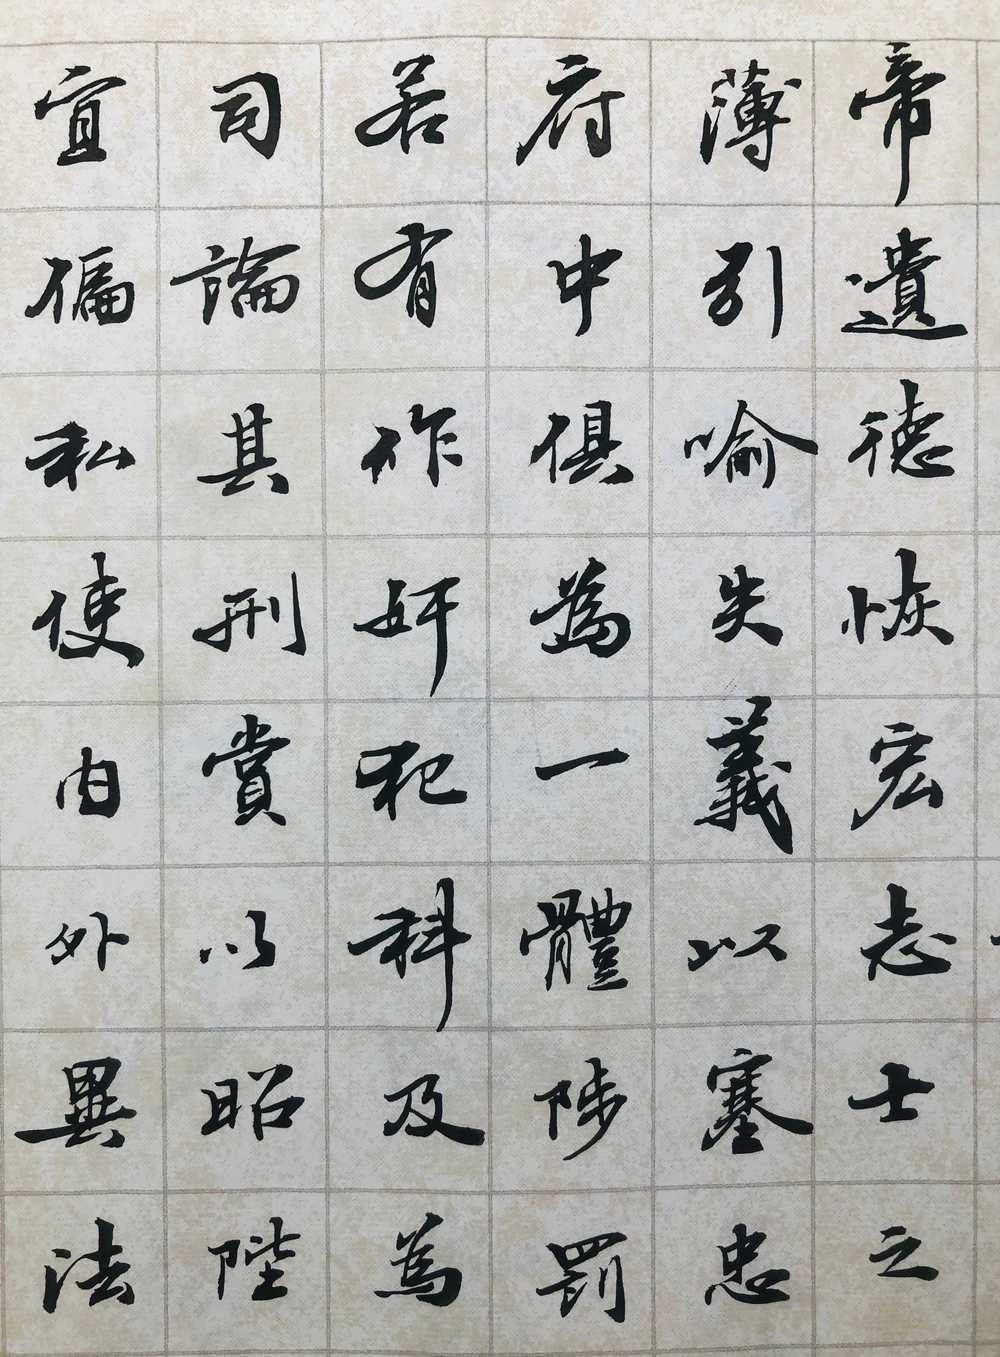 帝遺德恢宏志士之
薄引喻失義以塞忠
府中俱為一體陟罰
若有作奸犯科及為
司論其刑賞以昭陛
宜偏私使内外異法